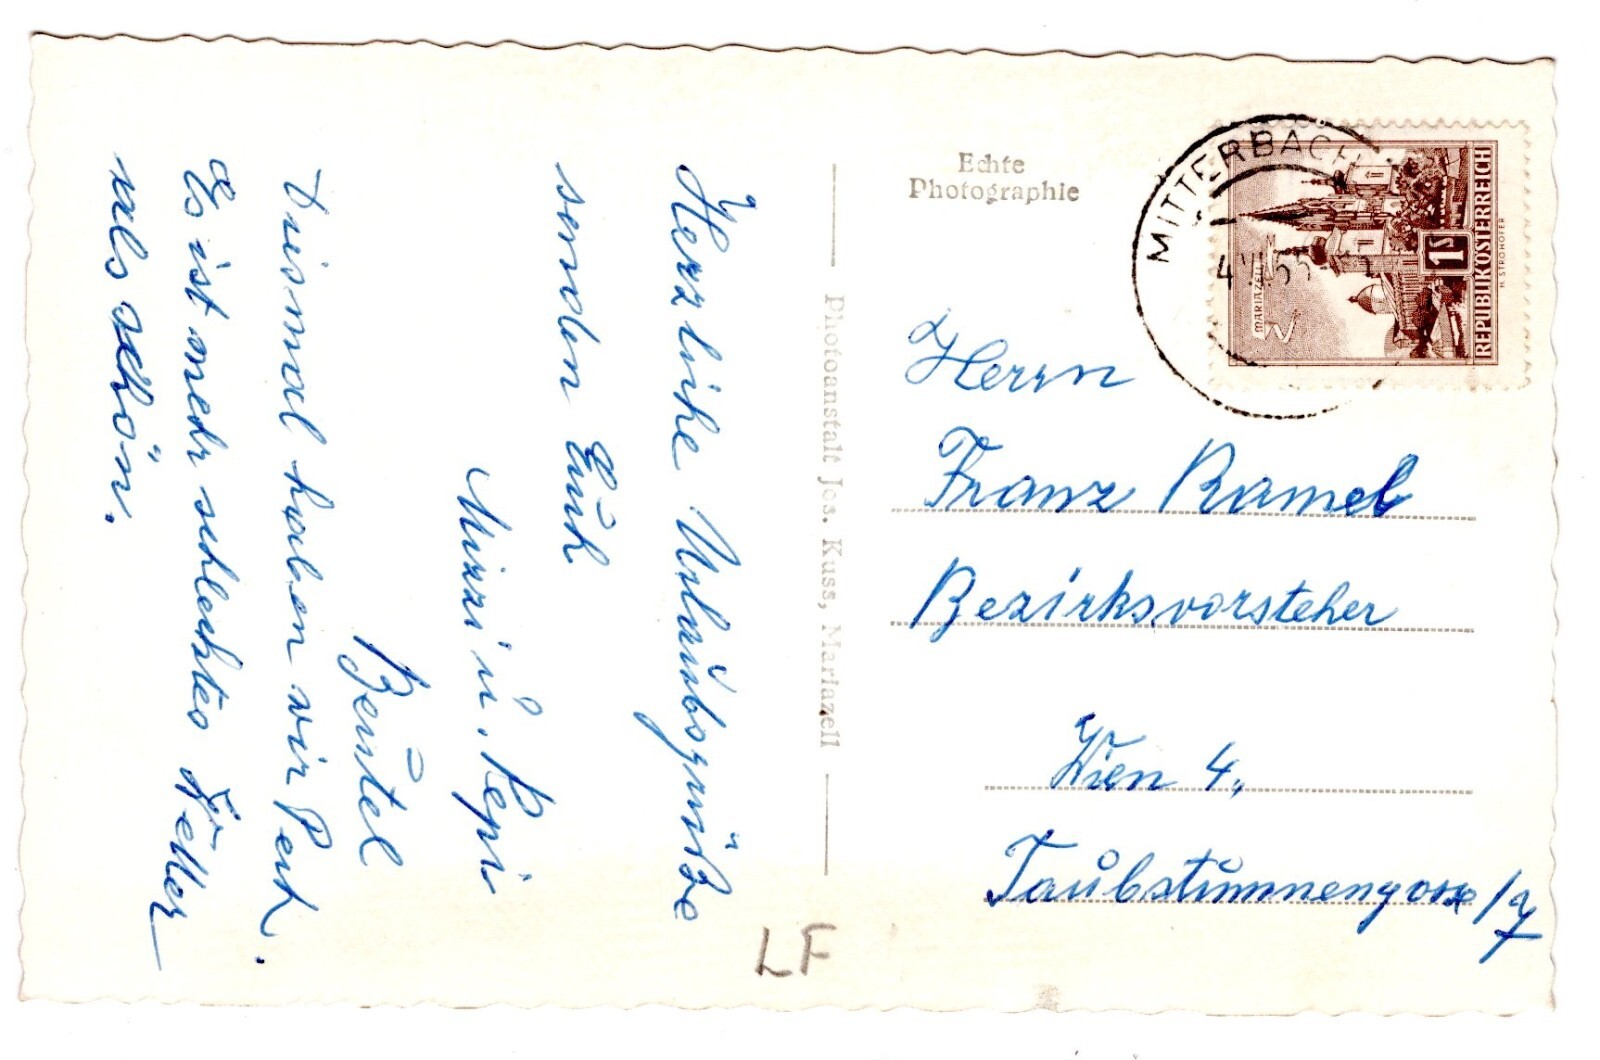 Herzliche Urlaubsgrüße
senden Euch
Mizzi u. Pepi
Beutel
Diesmal haben wir Pech.
Es ist mehr schlechtes Wetter
als schön.
Echte
Photographie
Photoanstalt Jos. Kuss, Mariazell
MITTERBACH
MARIAZELL
1S
REPUBLIK ÖSTERREICH
H. STROHOFER
Herrn
Franz Ramel
Bezirksvorsteher
Wien 4,
Taubstummengasse /7
LF